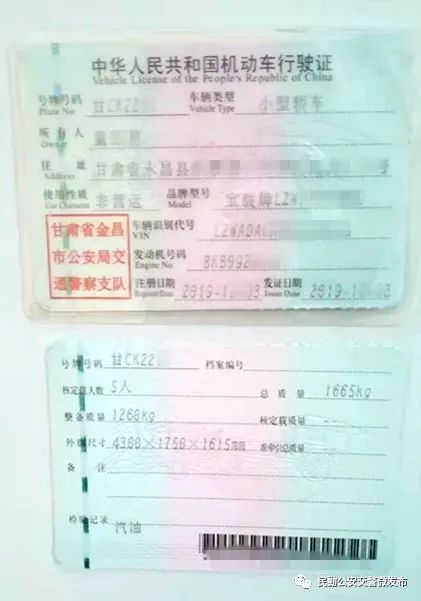 中华人民共和国机动车行驶证
Vehicle License of the People's Republic of China
号牌号码 甘CK22 车辆类型 小型轿车
Plate No. Vehicle Type
所有人
Owner
住址 甘肃省永昌县 号
Address
使用性质 非营运 品牌型号 宝骏牌LZW
Use Character Model
甘肃省金昌
市公安局交
通警察支队
车辆识别代号 LZWADA
VIN
发动机号码 8KB992
Engine No.
注册日期 2019-1 03 发证日期 2019-1 03
Register Date Issue Date
号牌号码 甘CK22 档案编号
核定载人数 5人 总质量 1665kg
整备质量 1260kg 核定载质量 --
外廓尺寸 4300×1750×1615 准牵引总质量 --
备注
检验记录
汽油
民勤公安交警微发布